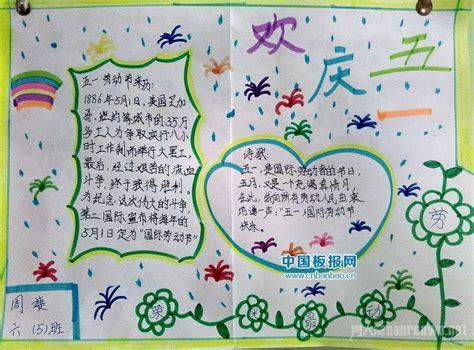 欢庆五一
五一劳动节来历:
1886年5月1日,美国芝加
哥、纽约等城市的35万
多工人为争取实行八小
时工作制而举行大罢工,
最后,经过艰苦的流血
斗争,终于获得胜利。
为纪念,这次伟大的斗争,
第二国际宣布将每年的
5月1日定为“国际劳动节”
诗歌:
五一,是国际劳动者的节日,
五月,又是一个充满真情月,
在此,我向所有劳动人民由衷
地道一声:“五一”国际劳动节
快乐.
中国板报网
www.cnbanbao.cn
劳
动
最
光
荣
周
六(5)班
nanrenwo.net